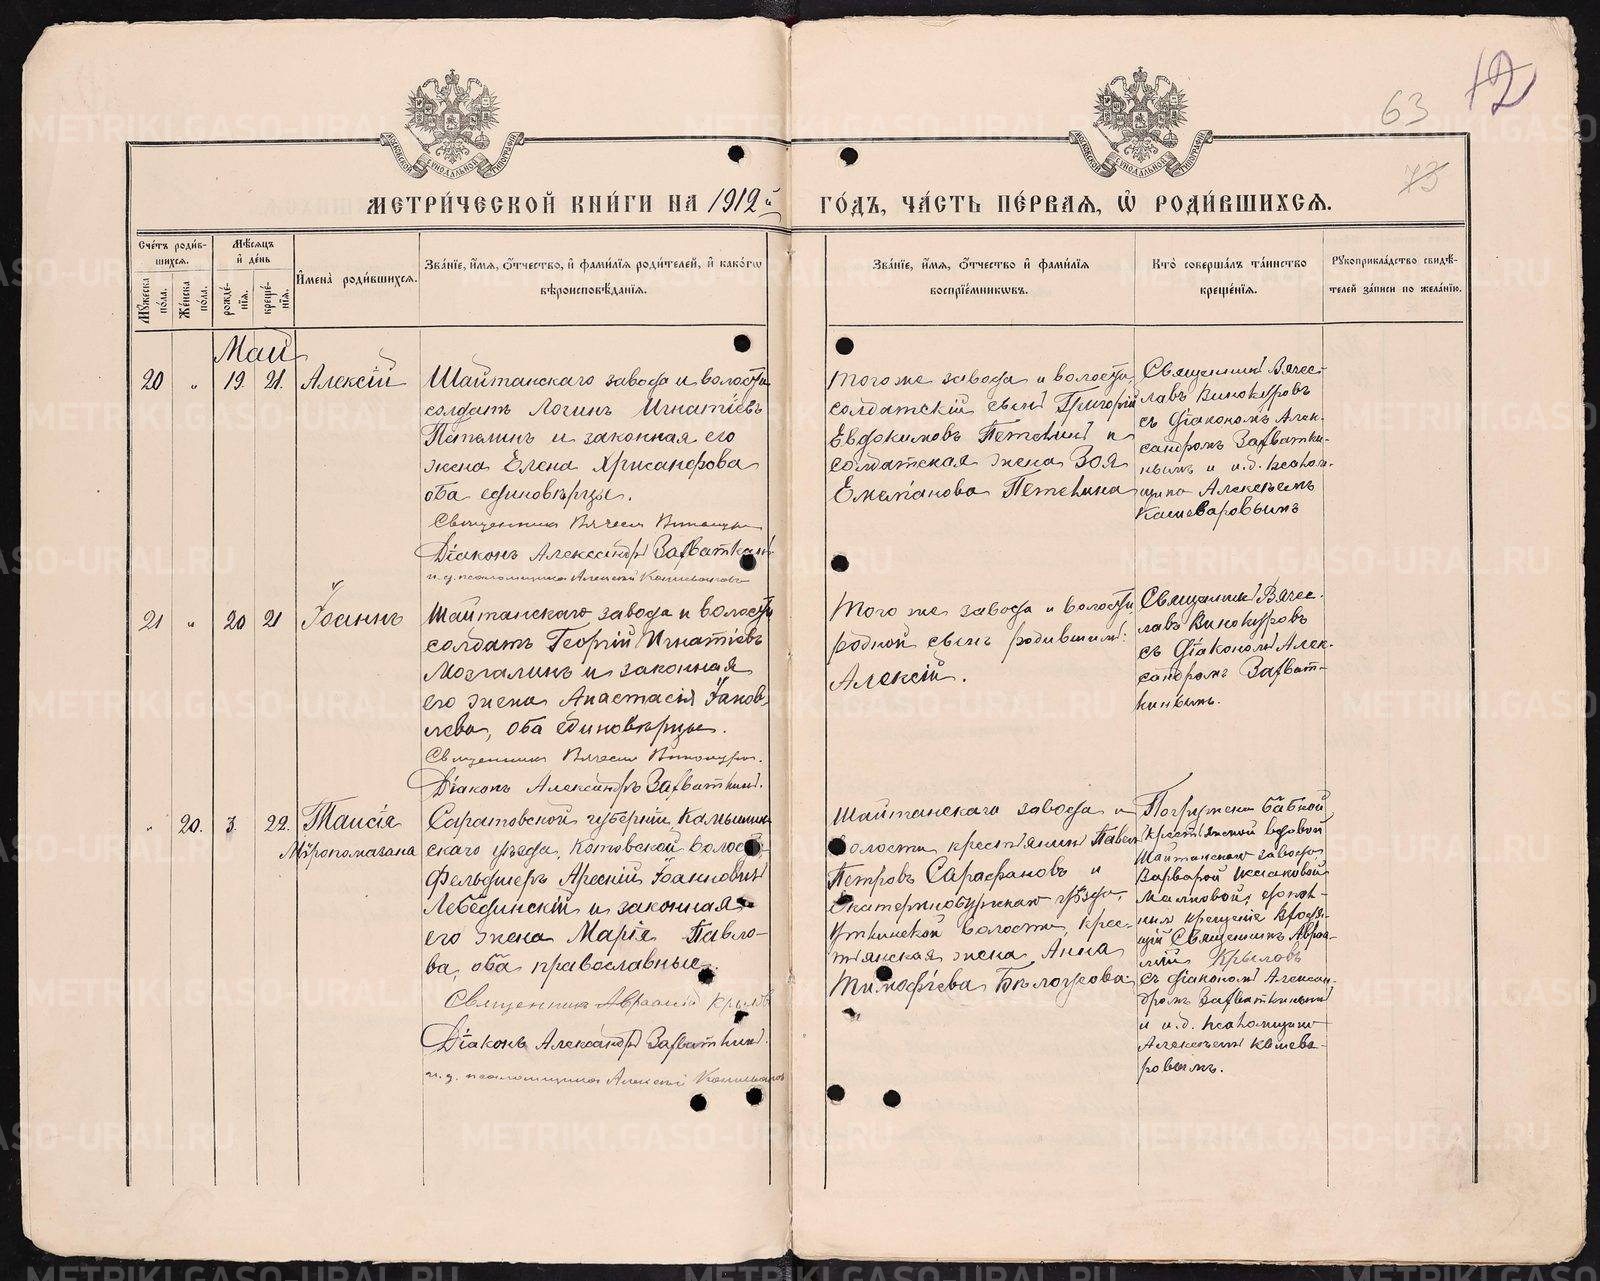 63
12
73
МЕТРИЧЕСКОЙ КНИГИ НА 1912й
ГОДЪ, ЧАСТЬ ПЕРВАЯ, Ѿ РОДИВШИХСЯ.
Счетъ родив-
шихся.
Мужеска пола.
Женска пола.
Мѣсяцъ
и день
рожде-
нія.
креще-
нія.
Имена родившихся.
Званіе, имя, отчество, и фамилія родителей, и какогѡ
вѣроисповѣданія.
Званіе, имя, отчество и фамилія
воспріемниковъ.
Кто совершалъ таинство
крещенія.
Рукоприкладство свидѣ-
телей записи по желанію.
Май
20 " 19. 21. Алексій
Шайтанскаго завода и волости
солдатъ Логинъ Игнатіевъ
и законная его
жена Елена Хрисанфова
оба единовѣрцы.
Священникъ
Діаконъ Александръ Завьаткинъ
и. д. псаломщика Алексѣй
Того же завода и волости,
солдатскій сынъ Григорій
Евдокимовъ Петелинъ и
солдатская жена Зоя
Емеліанова Петелина
Священникъ Вячес-
лавъ Винокуровъ
съ діакономъ Алек-
сандромъ
и и. д. псалом-
щика Алексѣемъ
Кашеваровымъ
21 " 20 21 Іоаннъ
Шайтанскаго завода и волости
солдатъ Георгій Игнатіевъ
Мозгалинъ и законная
его жена Анастасія Іаков-
лева, оба единовѣрцы.
Священникъ
Діаконъ Александръ
Того же завода и волости,
родной сынъ родившим:
Алексій.
Священникъ Вячес-
лавъ Винокуровъ
съ діакономъ Алек-
сандромъ
" 20. 3. 22. Таисія
Мѵропомазана
Саратовской губерніи, Камышин-
скаго уѣзда, Котовской волости,
Фельдшеръ Арсеній Іоанновичъ
Лебединскій и законная
его жена Марія Павло-
ва, оба православные.
Священникъ Авраамій Крыловъ
Діаконъ Александръ
и. д. псаломщика Алексѣй
Шайтанскаго завода и
волости крестьянинъ Павелъ
Петровъ Сарафановъ и
Екатеринбургскаго уѣзда,
Уткинской волости, крес-
тьянская жена Анна
Тимофіева Бѣлоусова.
Погружена бабкой
крестьянской вдовой
Шайтанскаго завода
Варварой Исаковой
Малковой, допол-
нилъ крещеніе
Священникъ Авраа-
мій Крыловъ
съ діакономъ Алексан-
дромъ
и и. д. псаломщика
Алексѣемъ Кашева-
ровымъ.